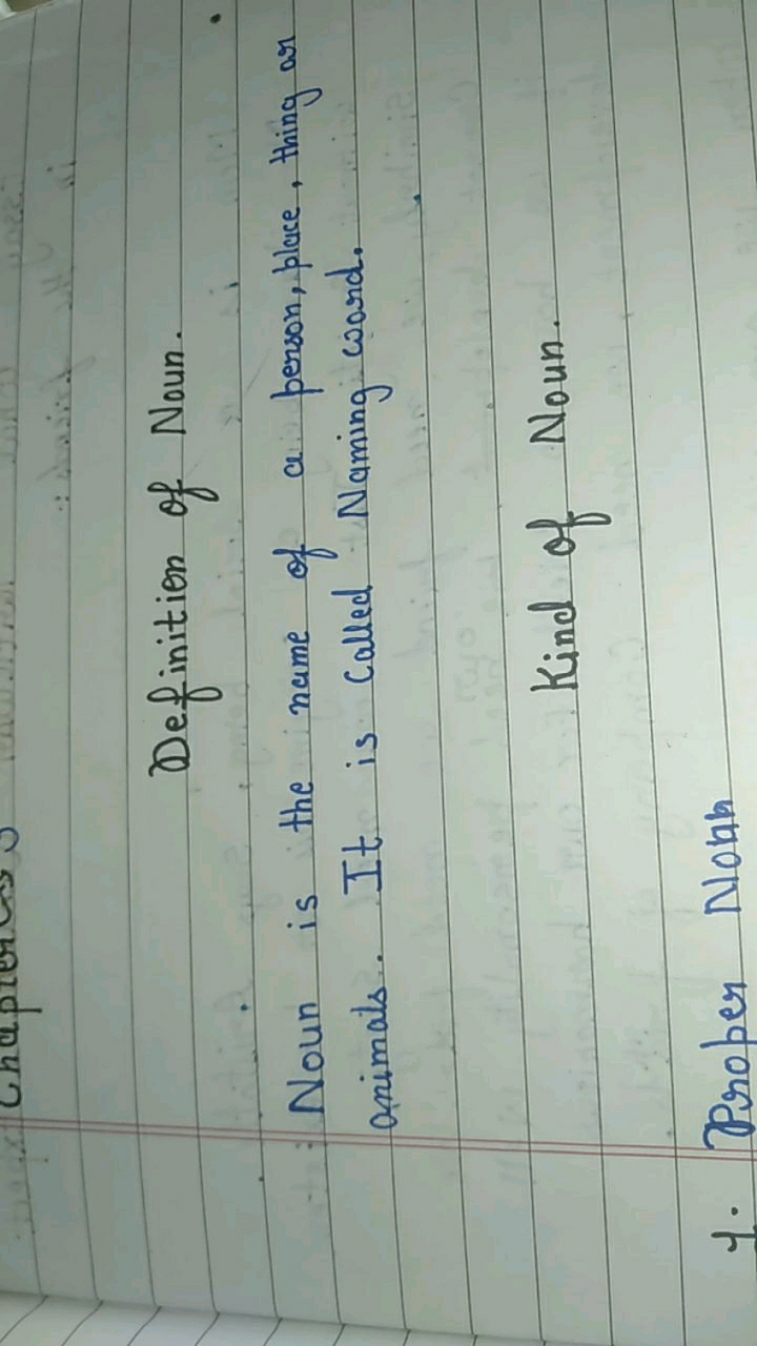 Chapter
Definition of Noun.
Noun is the name of a person, place, thing or
animals. It is Called Naming word.
Kind of Noun.
1. Proper Noun